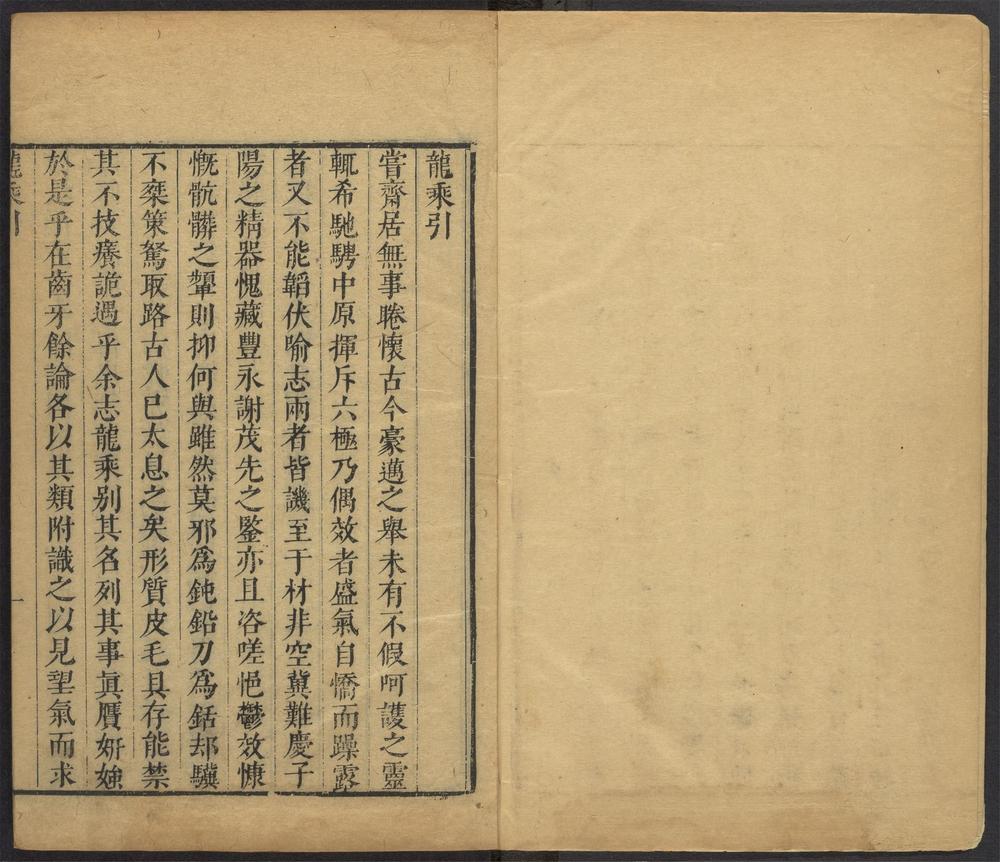 龍乘引
嘗齋居無事睠懷古今豪邁之舉未有不假呵護之靈
輒希馳騁中原揮斥六極乃偶效者盛氣自憍而躁露
者又不能韜伏喻志兩者皆譏至于材非空冀難慶子
陽之精器愧藏豐永謝茂先之鑒亦且咨嗟悒鬱效慷
慨骯髒之顰則抑何與雖然莫邪爲鈍鉛刀爲銛却驥
不椉策駑取路古人已太息之矣形質皮毛具存能禁
其不技癢詭遇乎余志龍乘別其名列其事眞贋妍媸
於是乎在齒牙餘論各以其類附識之以見望氣而求
龍乘引
一